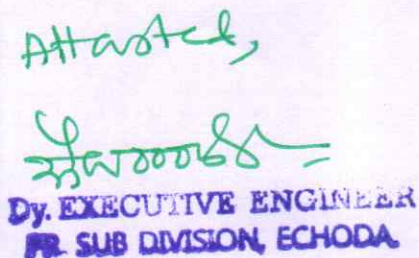 Attested,
Dy. EXECUTIVE ENGINEER
PR SUB DIVISION, ECHODA